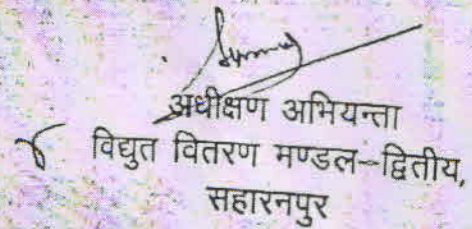 अधीक्षण अभियन्ता
विद्युत वितरण मण्डल-द्वितीय,
सहारनपुर